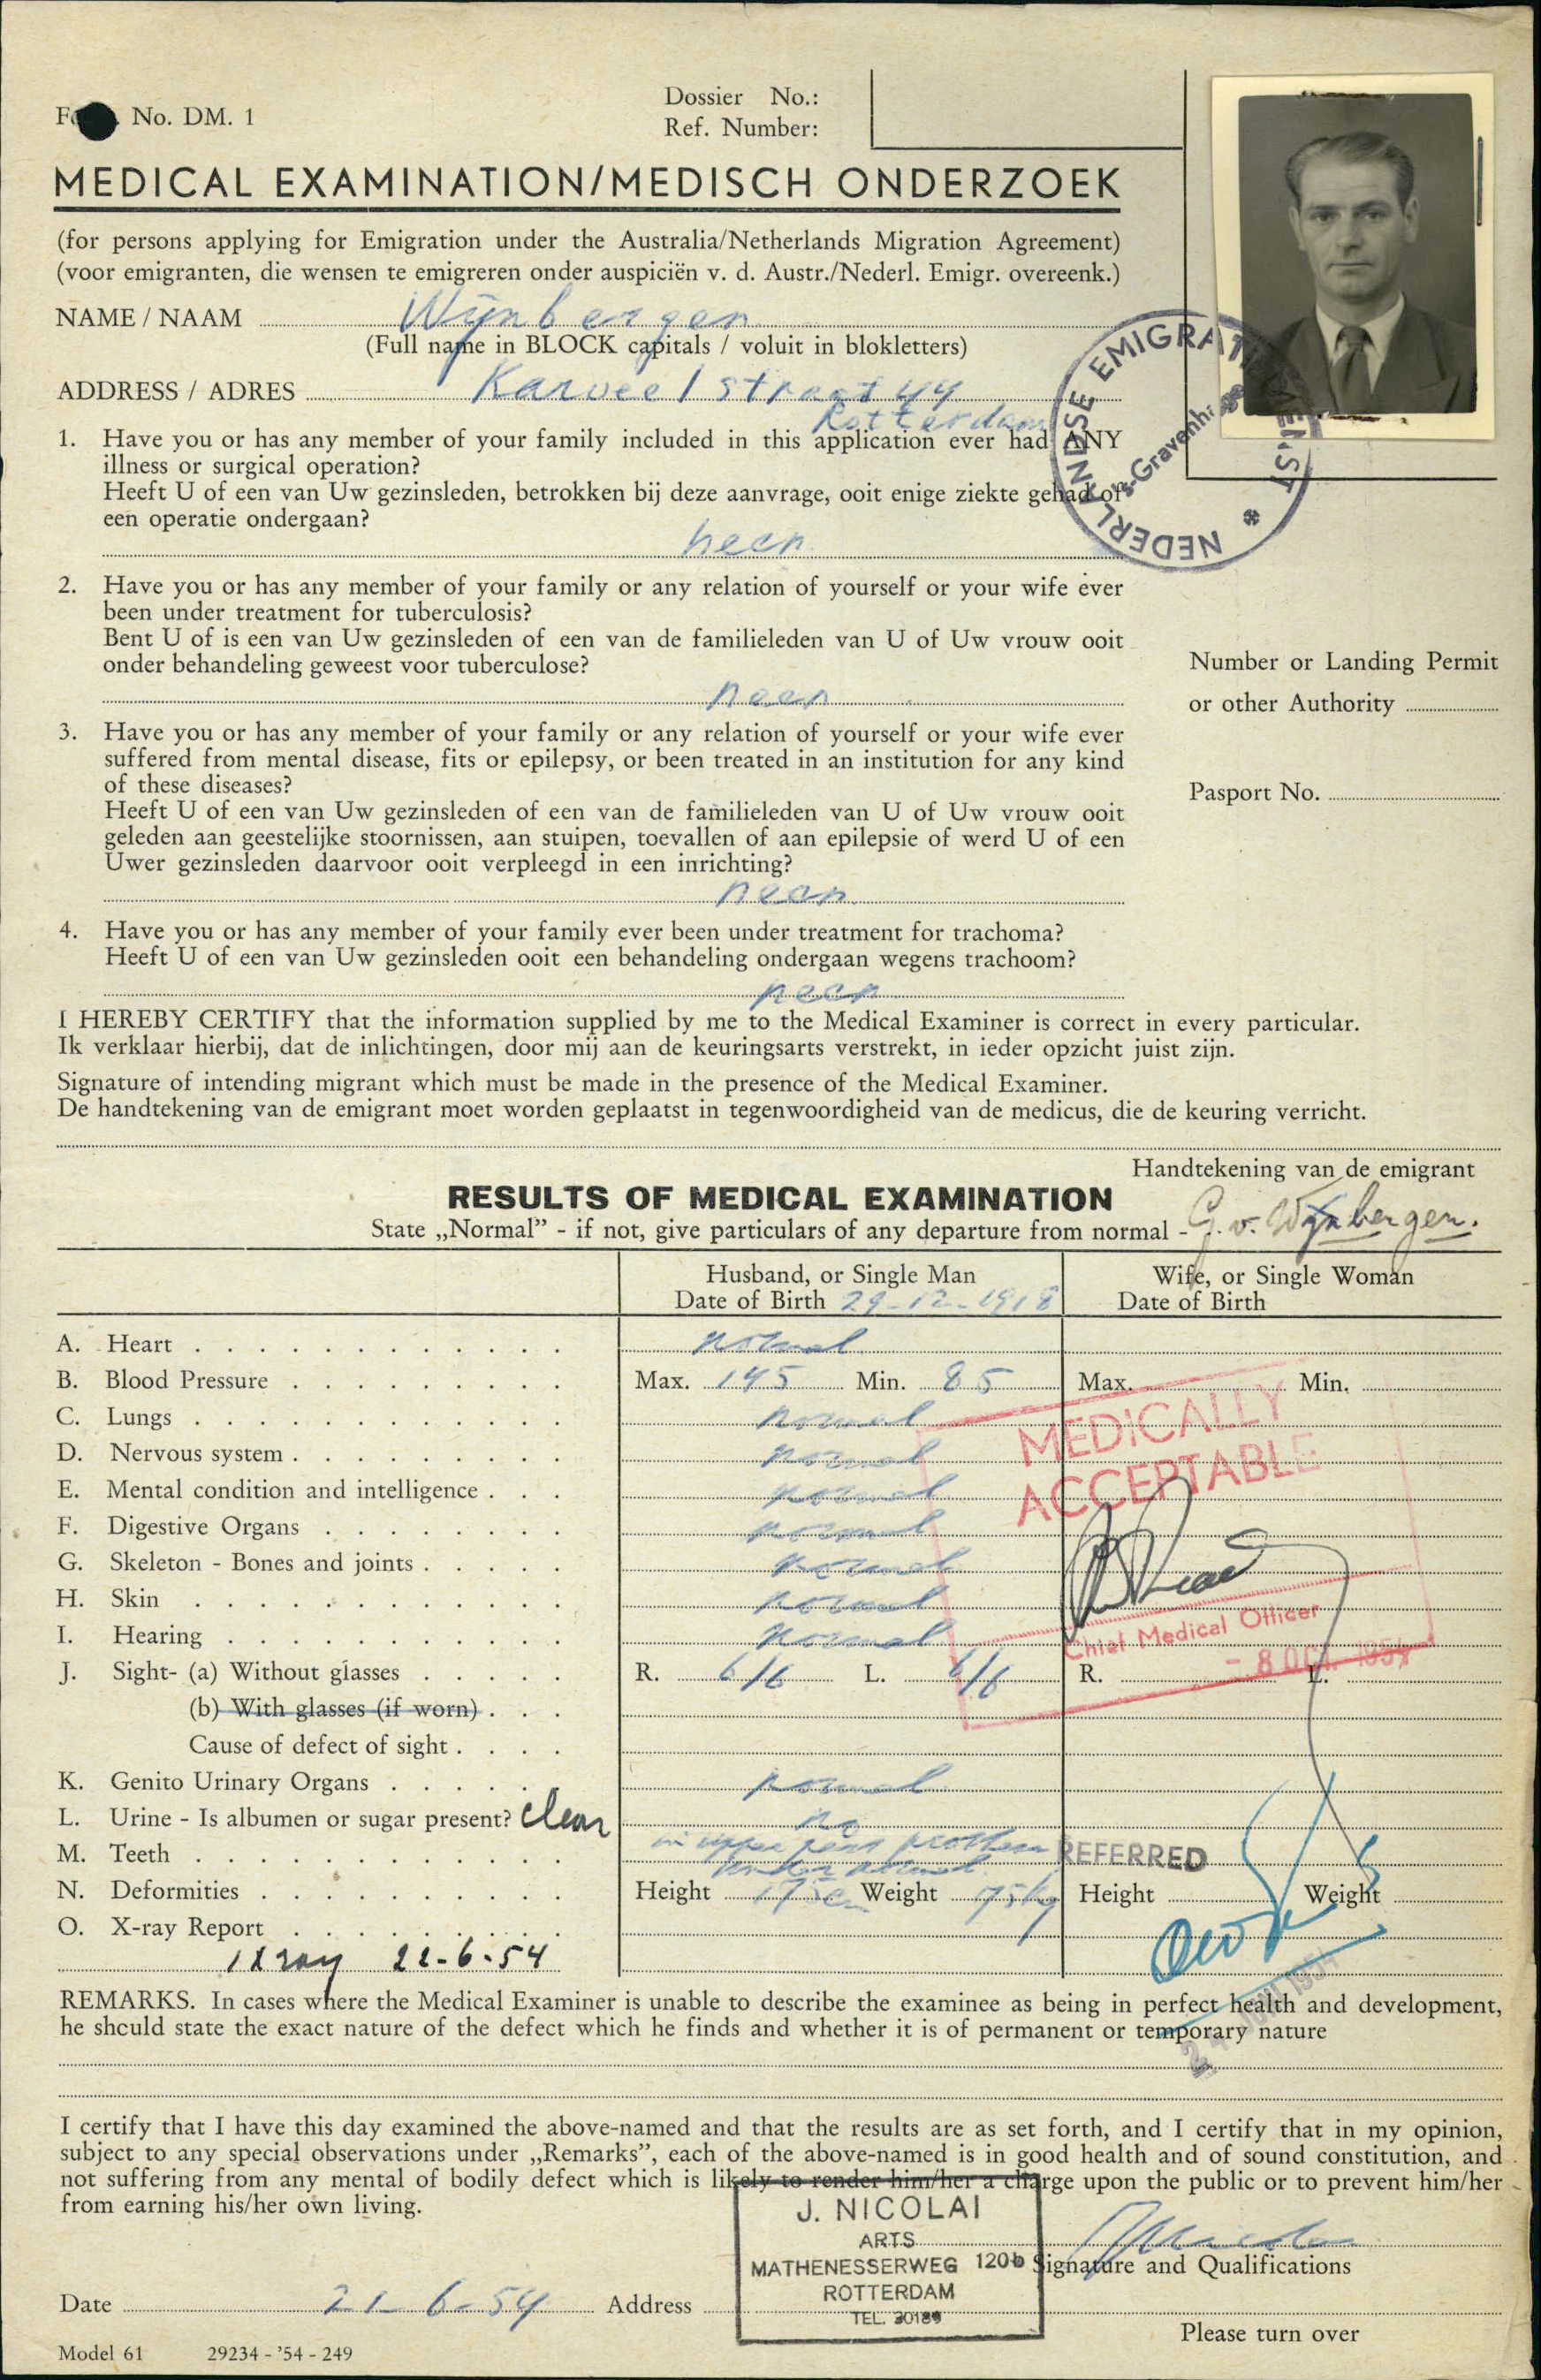 No. DM. 1
Dossier No.:
Ref. Number:
MEDICAL EXAMINATION/MEDISCH ONDERZOEK
(for persons applying for Emigration under the Australia/Netherlands Migration Agreement)
(voor emigranten, die wensen te emigreren onder auspiciën v. d. Austr./Nederl. Emigr. overeenk.)
NAME / NAAM Wijnbergen
(Full name in BLOCK capitals / voluit in blokletters)
ADDRESS / ADRES Karveelstraat 44
Rotterdam
NEDERLANDSE EMIGRATIEDIENST
's-Gravenhage
1. Have you or has any member of your family included in this application ever had ANY
illness or surgical operation?
Heeft U of een van Uw gezinsleden, betrokken bij deze aanvrage, ooit enige ziekte gehad of
een operatie ondergaan?
neen
2. Have you or has any member of your family or any relation of yourself or your wife ever
been under treatment for tuberculosis?
Bent U of is een van Uw gezinsleden of een van de familieleden van U of Uw vrouw ooit
onder behandeling geweest voor tuberculose?
neen
Number or Landing Permit
or other Authority
3. Have you or has any member of your family or any relation of yourself or your wife ever
suffered from mental disease, fits or epilepsy, or been treated in an institution for any kind
of these diseases?
Heeft U of een van Uw gezinsleden of een van de familieleden van U of Uw vrouw ooit
geleden aan geestelijke stoornissen, aan stuipen, toevallen of aan epilepsie of werd U of een
Uwer gezinsleden daarvoor ooit verpleegd in een inrichting?
neen
Pasport No.
4. Have you or has any member of your family ever been under treatment for trachoma?
Heeft U of een van Uw gezinsleden ooit een behandeling ondergaan wegens trachoom?
neen
I HEREBY CERTIFY that the information supplied by me to the Medical Examiner is correct in every particular.
Ik verklaar hierbij, dat de inlichtingen, door mij aan de keuringsarts verstrekt, in ieder opzicht juist zijn.
Signature of intending migrant which must be made in the presence of the Medical Examiner.
De handtekening van de emigrant moet worden geplaatst in tegenwoordigheid van de medicus, die de keuring verricht.
Handtekening van de emigrant
RESULTS OF MEDICAL EXAMINATION
State „Normal” - if not, give particulars of any departure from normal - G. v. Wijnbergen.
Husband, or Single Man Wife, or Single Woman
Date of Birth 29-12-1918 Date of Birth
A. Heart normal
B. Blood Pressure Max. 145 Min. 85 Max. Min.
C. Lungs normal
D. Nervous system normal
E. Mental condition and intelligence normal
F. Digestive Organs normal
G. Skeleton - Bones and joints normal
H. Skin normal
I. Hearing normal
J. Sight- (a) Without glasses R. 6/6 L. 6/6 R. L.
(b) With glasses (if worn)
Cause of defect of sight
MEDICALLY
ACCEPTABLE
Chief Medical Officer
- 8 OCT 1954
K. Genito Urinary Organs normal
L. Urine - Is albumen or sugar present? clear no
M. Teeth in upper jaw
REFERRED
N. Deformities Height 175 Weight 75 kg Height Weight
O. X-ray Report
1 X ray 22-6-54
REMARKS. In cases where the Medical Examiner is unable to describe the examinee as being in perfect health and development,
he should state the exact nature of the defect which he finds and whether it is of permanent or temporary nature
I certify that I have this day examined the above-named and that the results are as set forth, and I certify that in my opinion,
subject to any special observations under „Remarks”, each of the above-named is in good health and of sound constitution, and
not suffering from any mental of bodily defect which is likely to render him/her a charge upon the public or to prevent him/her
from earning his/her own living.
J. NICOLAI
ARTS
MATHENESSERWEG 120b
ROTTERDAM
TEL. 30189
Signature and Qualifications
Date 21-6-54 Address
Please turn over
Model 61 29234 - '54 - 249